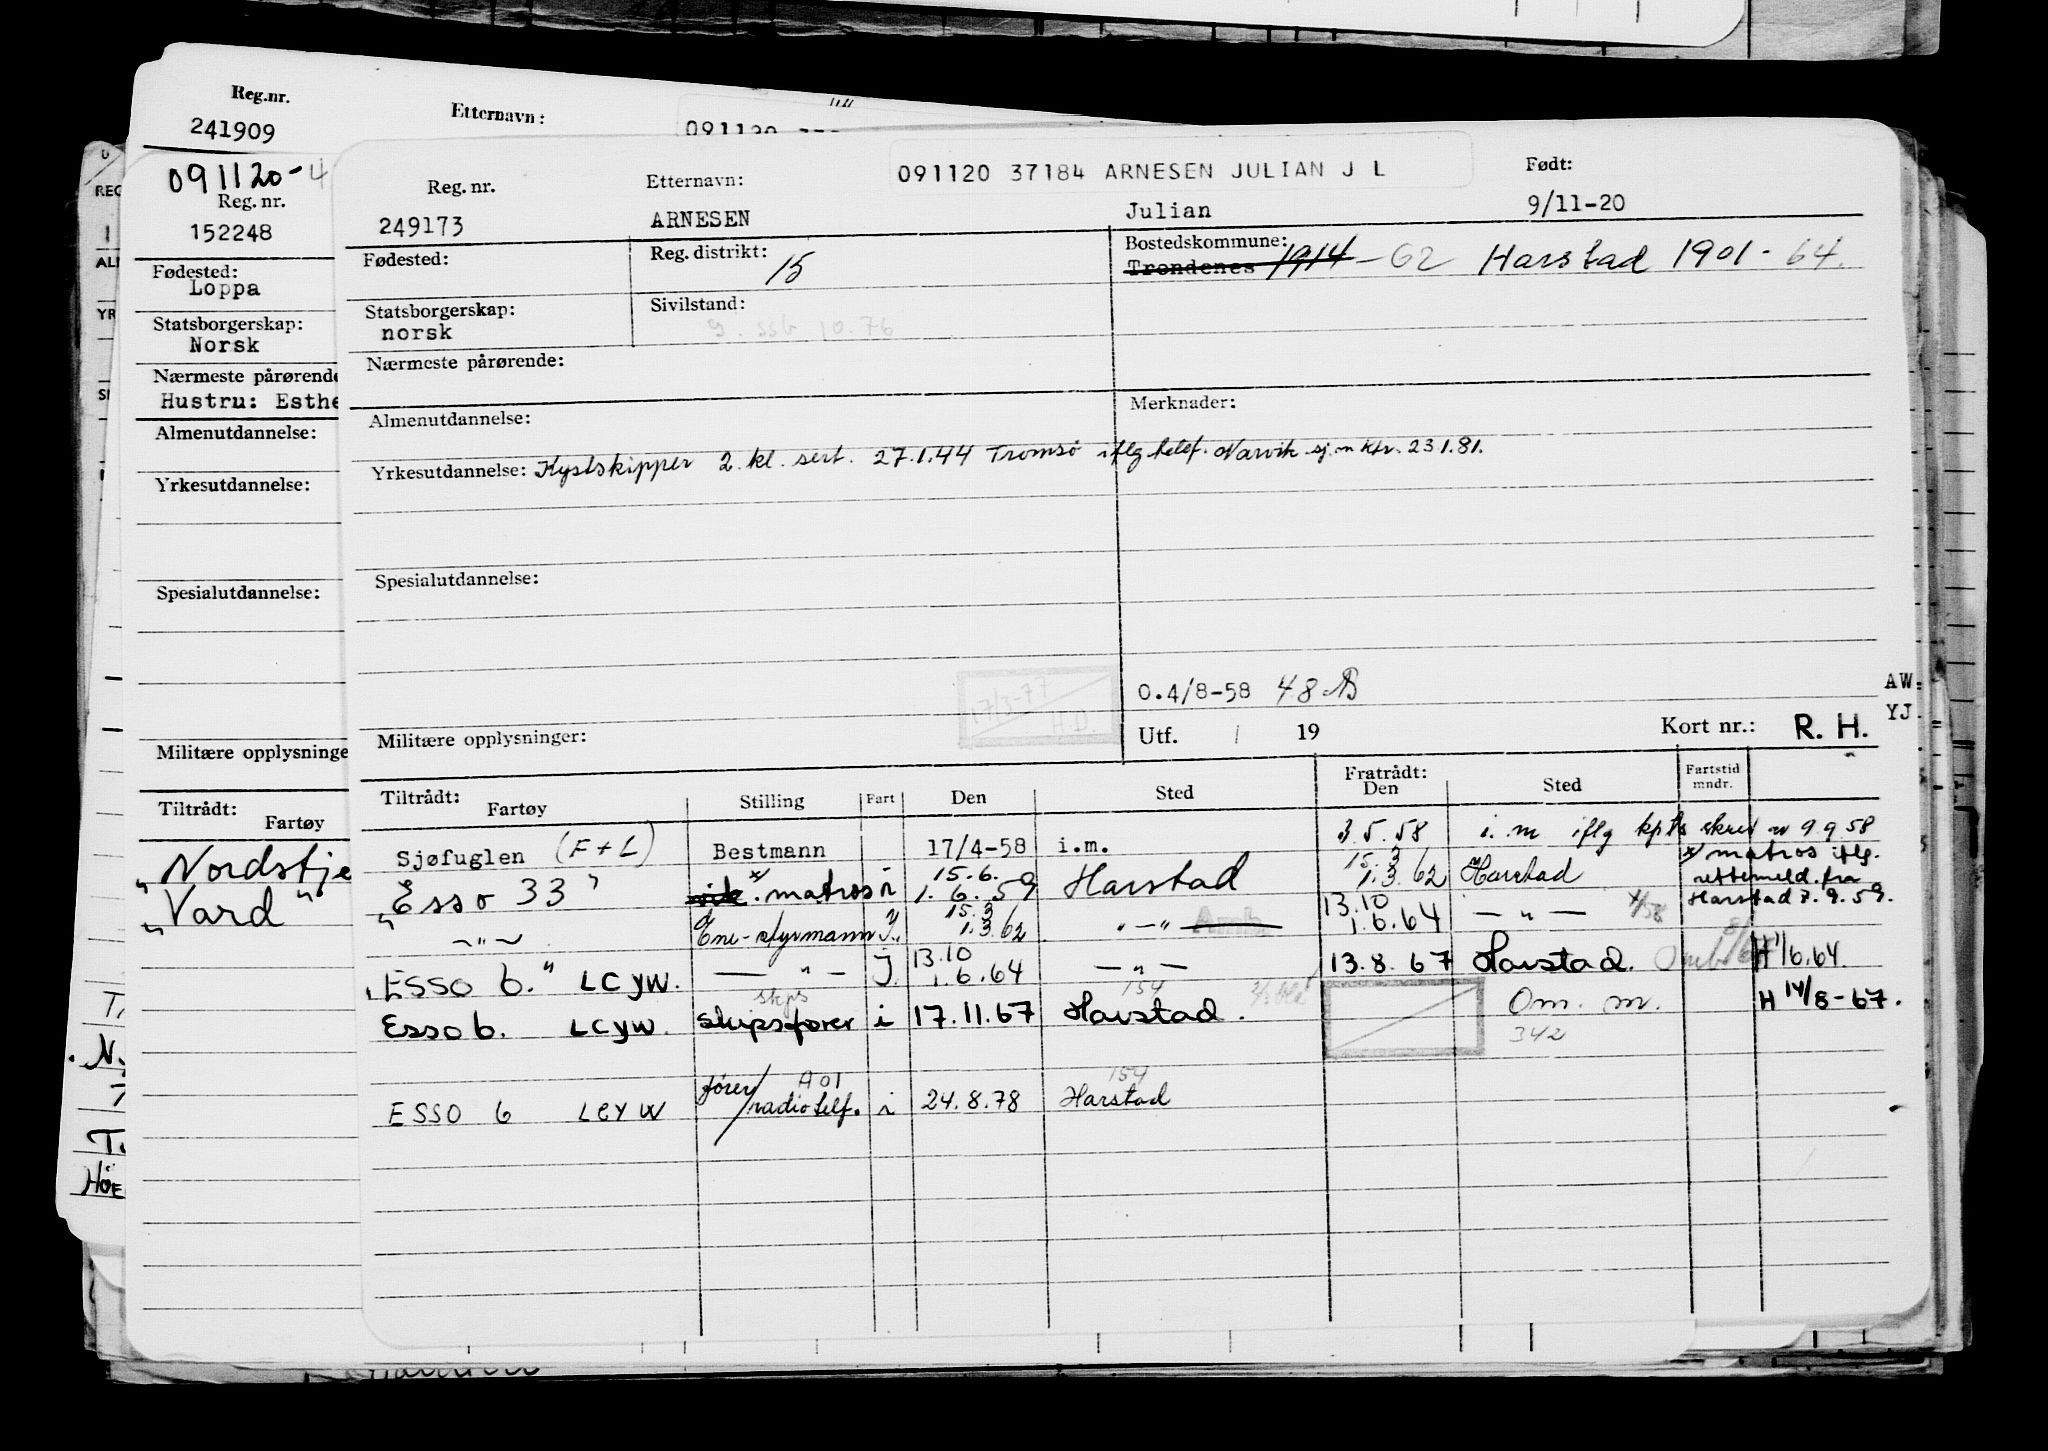 Reg.nr.
241909
Etternavn:
091120-4
Reg. nr.
152248
Fødested:
Loppa
Statsborgerskap:
Norsk
Nærmeste pårørende
Hustru: Esthe
Almenutdannelse:
Yrkesutdannelse:
Spesialutdannelse:
Militære opplysninge
Tiltrådt:
Fartøy
"Nordstje
"Vard"
091120 37184 ARNESEN JULIAN J L
Reg. nr. Etternavn: Født:
249173 ARNESEN Julian 9/11-20
Fødested: Reg. distrikt: 15 Bostedskommune:
Trondenes 1914 - 62 Harstad 1901 - 64.
Statsborgerskap: Sivilstand:
norsk g. ssb 10.76
Nærmeste pårørende:
Almenutdannelse: Merknader:
Yrkesutdannelse: Kystskipper 2. kl. sert. 27.1.44 Tromsø iflg telef. Narvik sj.m.ktr. 23.1.81.
Spesialutdannelse:
17/3-77
H.D.
O.4/8-58 48
Militære opplysninger: Utf. / 19 Kort nr.: R. H.
AW.
YJ.
Tiltrådt: Fartøy Stilling Fart Den Sted Fratrådt: Den Sted Fartstid mndr.
Sjøfuglen (F+L) Bestmann 17/4-58 i.m. 3.5.58 i. m iflg kpts skriv av 9.9.58
"Esso 33" x) matros i 15.6. 1.6.59 Harstad 15.3 1.3.62 Harstad x) matros iflg. rettemeld. fra Harstad 7.9.59.
— " — Ene-styrmann I. 15.3 1.3.62 " — " 13.10 1.6.64 — " —
"ESSO 6." LCYW. — " — J. 13.10 1.6.64 — " — 13.8.67 Harstad. H 1/6.64.
Esso 6. LCYW. skps skipsfører i 17.11.67 154 Harstad. Om. m. 342 H 14/8-67.
ESSO 6 LCYW fører/radiotelf. A01 i 24.8.78 154 Harstad